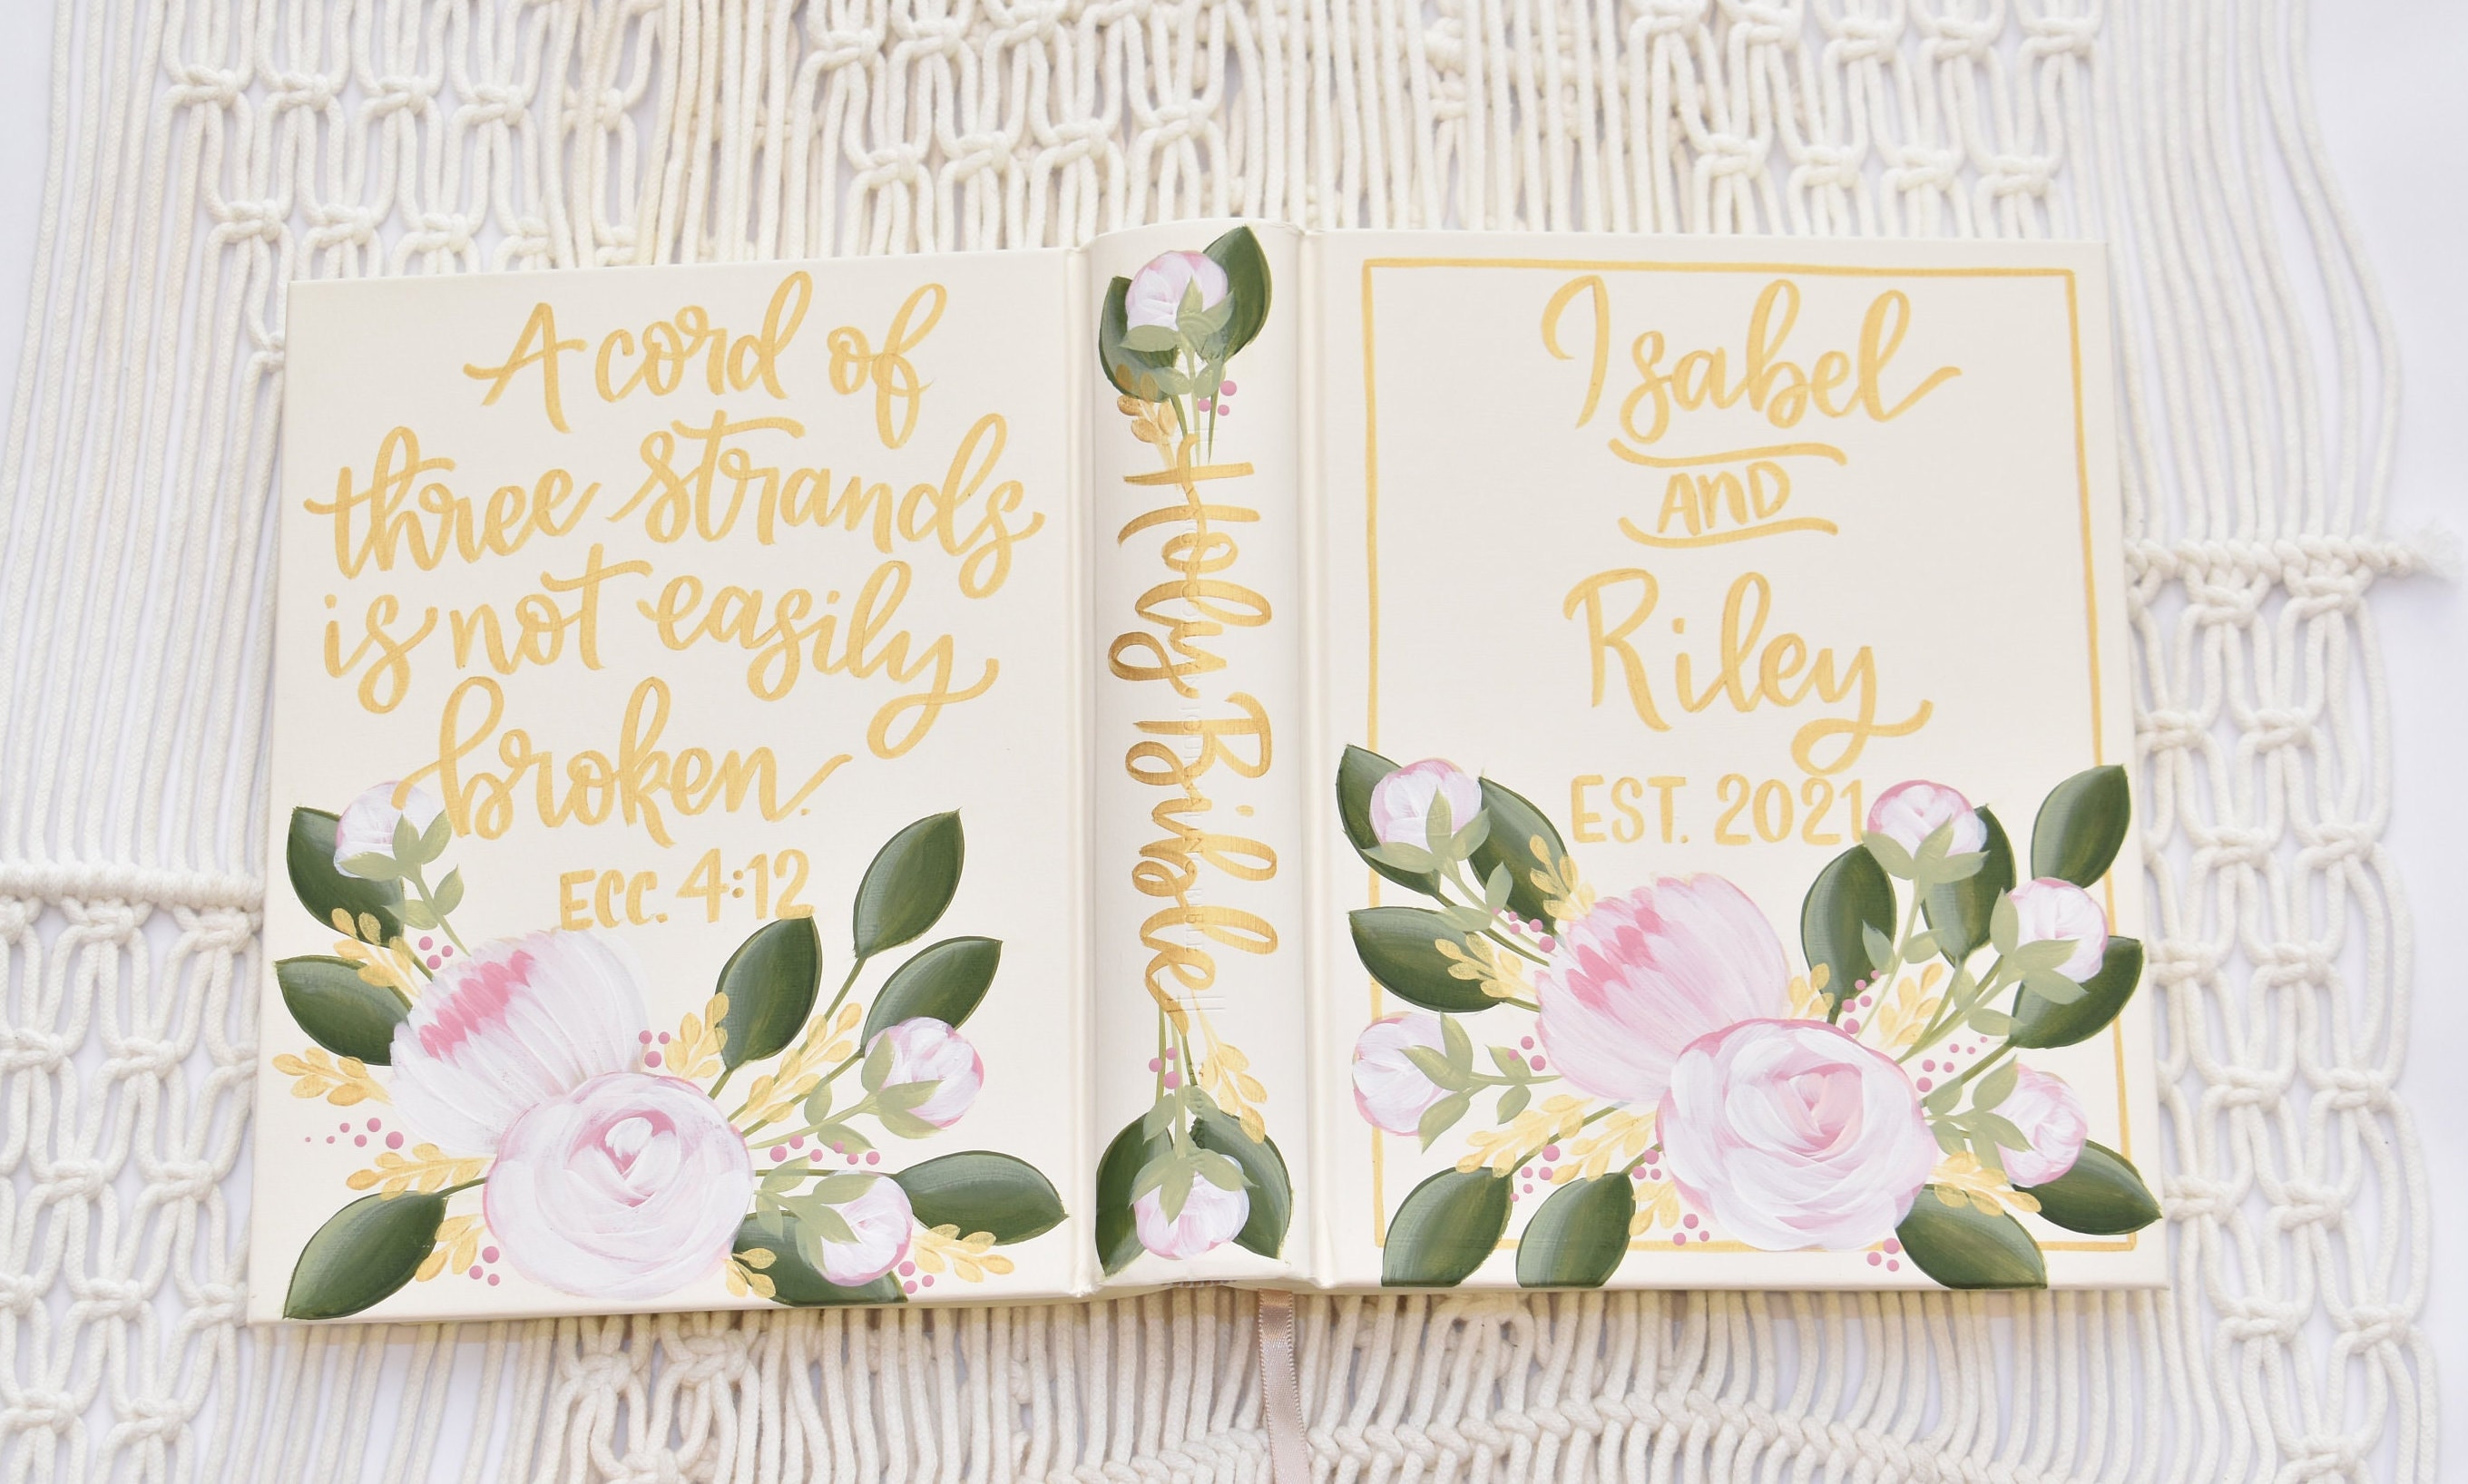 A cord of
three strands
is not easily
broken.
ECC. 4:12
Holy Bible
Isabel
AND
Riley
EST. 2021